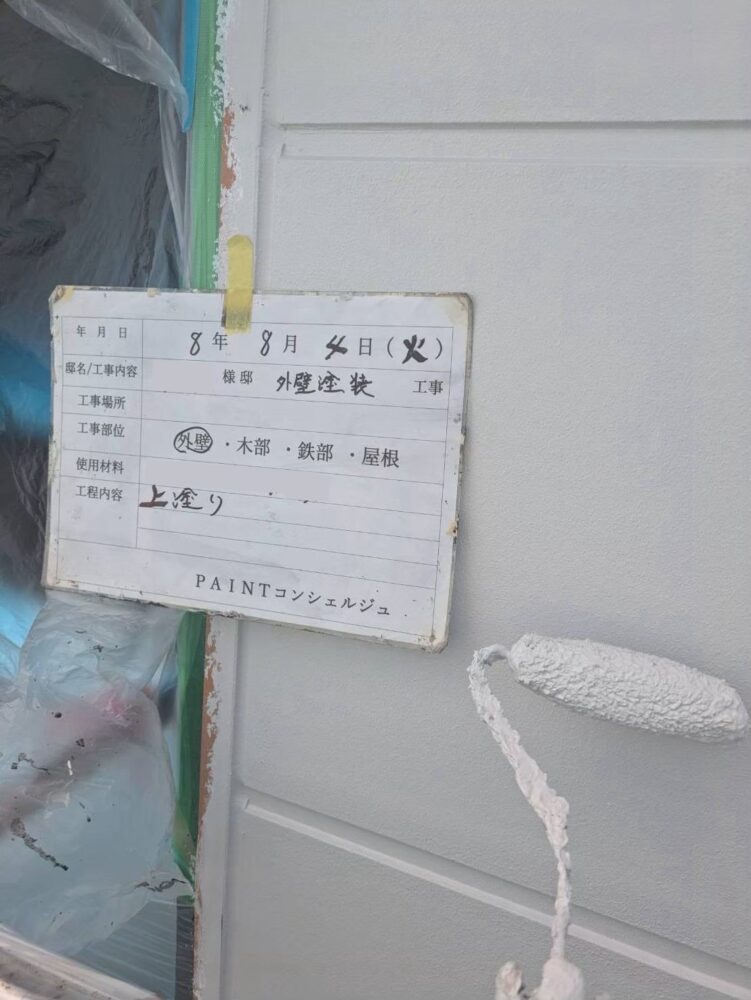 年月日 8年 8月 4日(火)
邸名/工事内容 様邸 外壁塗装 工事
工事場所
工事部位 外壁・木部・鉄部・屋根
使用材料
工程内容 上塗り
PAINTコンシェルジュ